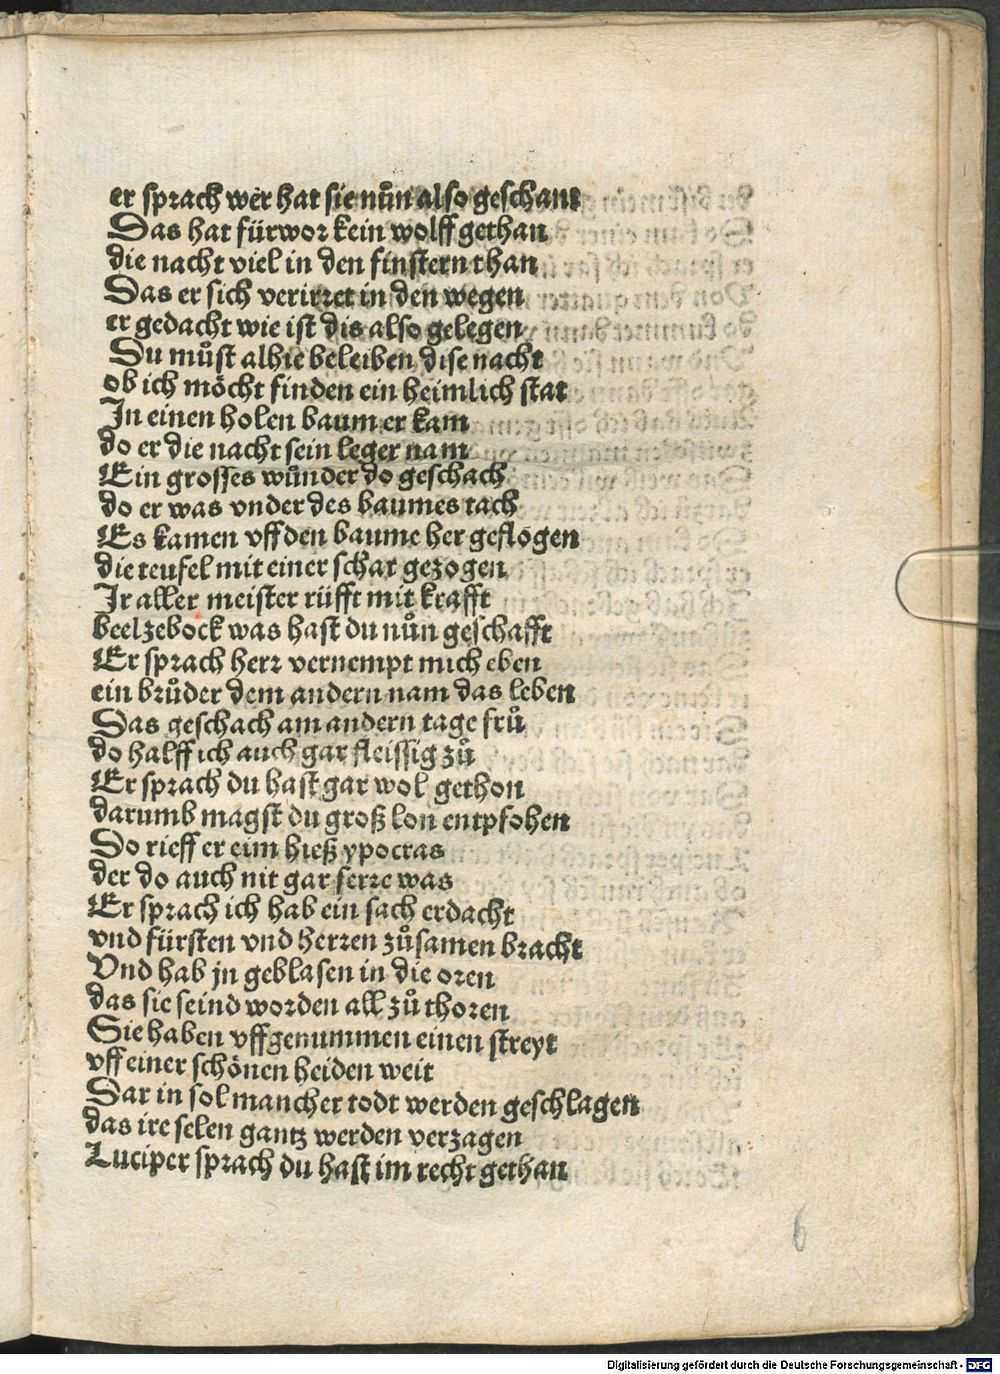 er sprach wer hat sie nůn also geschant
Das hat fürwor kein wolff gethan
die nacht viel in den finstern than
Das er sich verirret in den wegen
er gedacht wie ist dis also gelegen
Du můst alhie beleiben dise nacht
ob ich möcht finden ein heimlich stat
In einen holen baum er kam
do er die nacht sein leger nam
Ein grosses wůnder do geschach
do er was vnder des baumes tach
Es kamen vff den baume her geflogen
die teufel mit einer schar gezogen
Ir aller meister rüfft mit krafft
beelzebock was hast du nůn geschafft
Er sprach herr vernempt mich eben
ein brůder dem andern nam das leben
Das geschach am andern tage frů
do halff ich auch gar fleissig zů
Er sprach du hast gar wol gethon
darumb magst du groß lon entpfohen
Do rieff er eim hieß ypocras
der do auch nit gar ferre was
Er sprach ich hab ein sach erdacht
vnd fürsten vnd herren zůsamen bracht
Vnd hab jn geblasen in die oren
das sie seind worden all zů thoren
Sie haben vffgenummen einen streyt
vff einer schönen heiden weit
Dar in sol mancher todt werden geschlagen
das ire selen gantz werden verzagen
Luciper sprach du hast im recht gethan
6
Digitalisierung gefördert durch die Deutsche Forschungsgemeinschaft - DFG